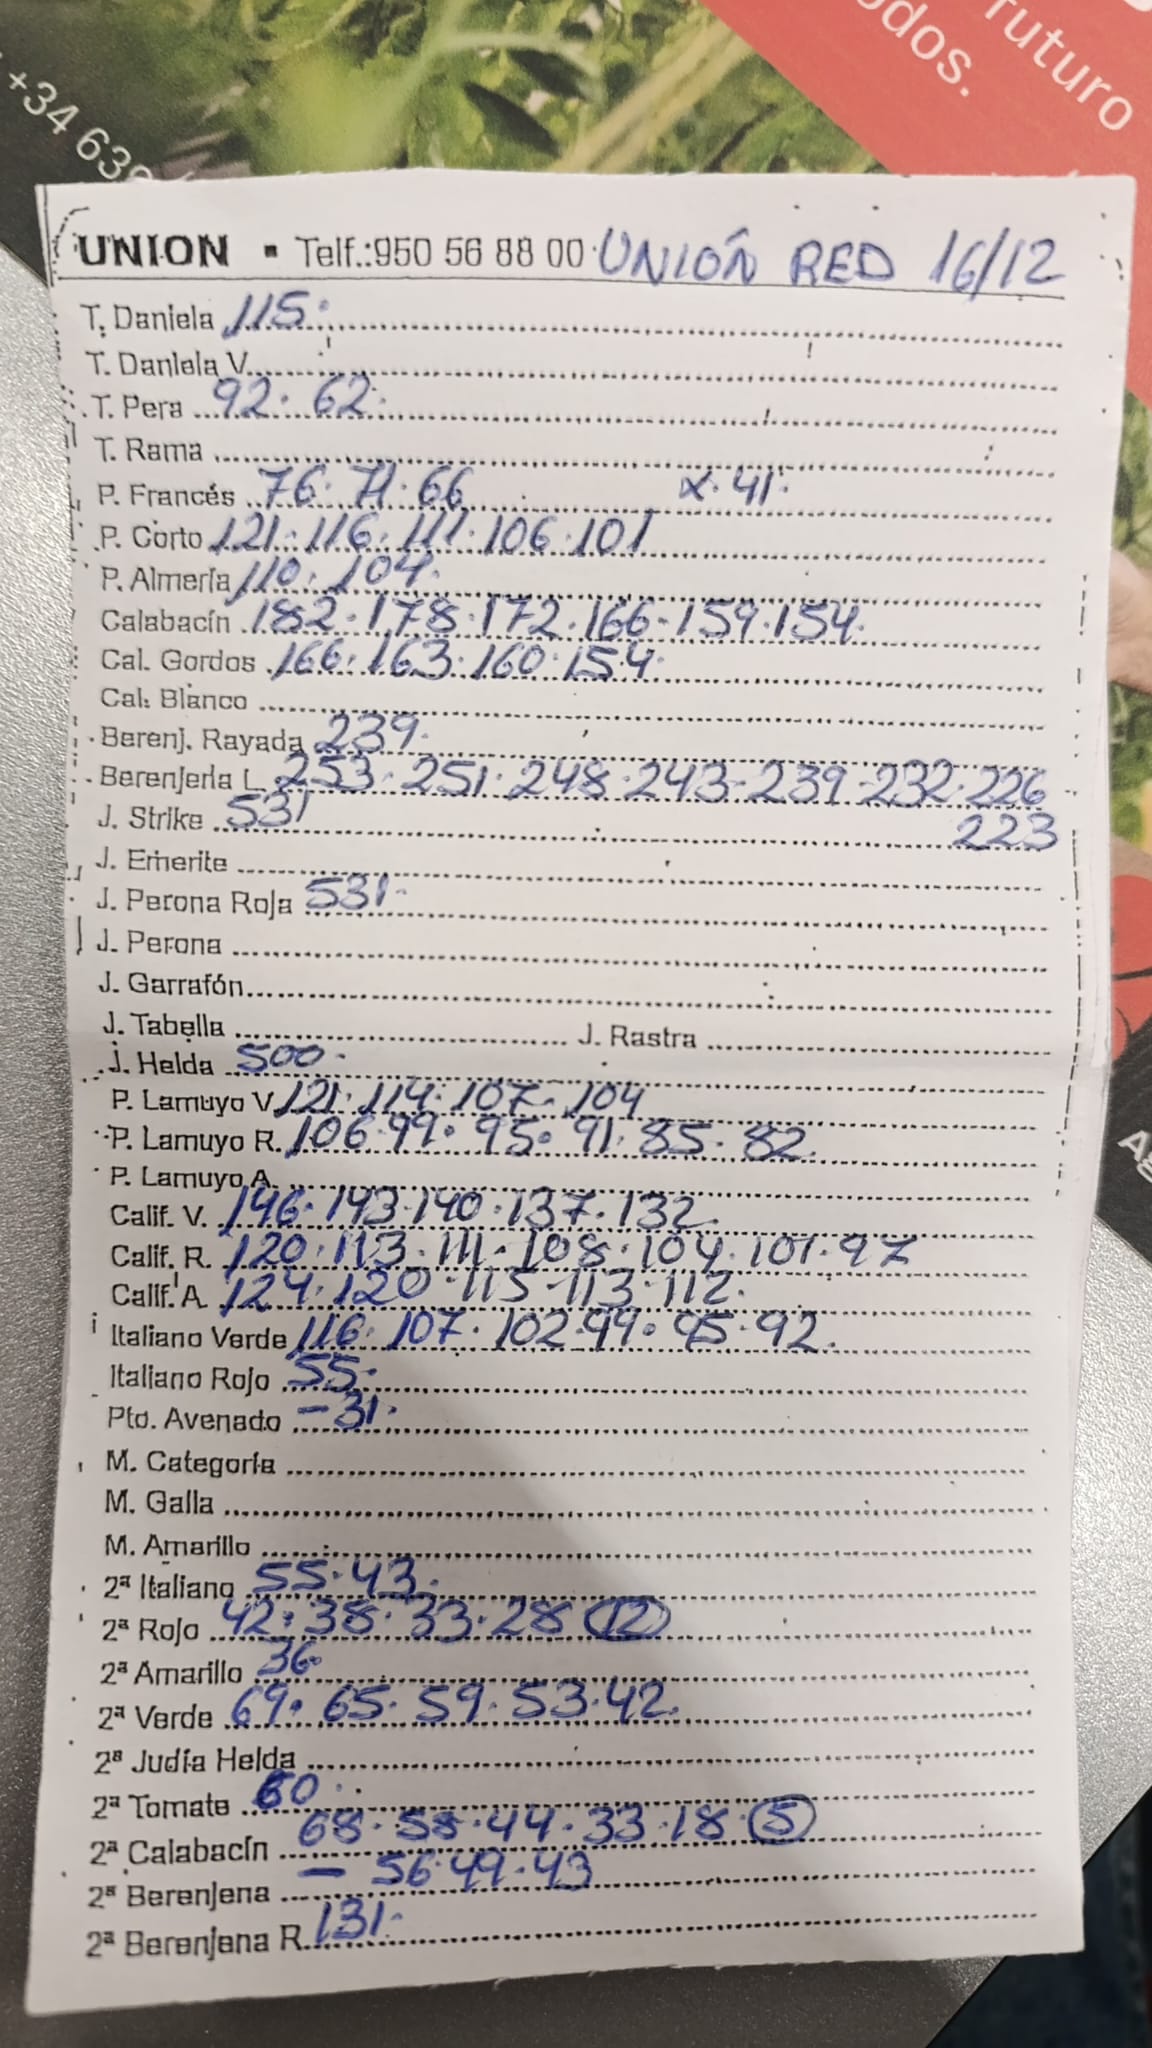 +34 639
futuro
odos.
UNION ▪ Telf.:950 56 88 00 UNIÓN RED 16/12
T. Daniela 115.
T. Daniela V.
T. Pera 92. 62.
T. Rama
P. Francés 76. 71. 66 x. 41.
P. Corto 121. 116. 111. 106. 101
P. Almería 110. 104.
Calabacín 182. 178. 172. 166. 159. 154.
Cal. Gordos 166. 163. 160. 154.
Cal. Blanco
Berenj. Rayada 239.
Berenjena L. 253. 251. 248. 243. 239. 232. 226
223
J. Strike 531
J. Emerite
J. Perona Roja 531.
J. Perona
J. Garrafón
J. Tabella J. Rastra
J. Helda 500.
P. Lamuyo V. 121. 114. 107. 104
P. Lamuyo R. 106. 99. 95. 91. 85. 82.
P. Lamuyo A.
Calif. V. 146. 143. 140. 137. 132.
Calif. R. 120. 113. 111. 108. 104. 101. 97
Calif. A. 124. 120. 115. 113. 112.
Italiano Verde 116. 107. 102. 99. 95. 92.
Italiano Rojo 55.
Pto. Avenado - 31.
M. Categoría
M. Galla
M. Amarillo
2ª Italiano 55. 43.
2ª Rojo 42. 38. 33. 28 (12)
2ª Amarillo 36.
2ª Verde 69. 65. 59. 53. 42.
2ª Judía Helda
2ª Tomate 60.
2ª Calabacín 68. 58. 44. 33. 18. (5)
2ª Berenjena - 56. 49. 43
2ª Berenjena R. 131.